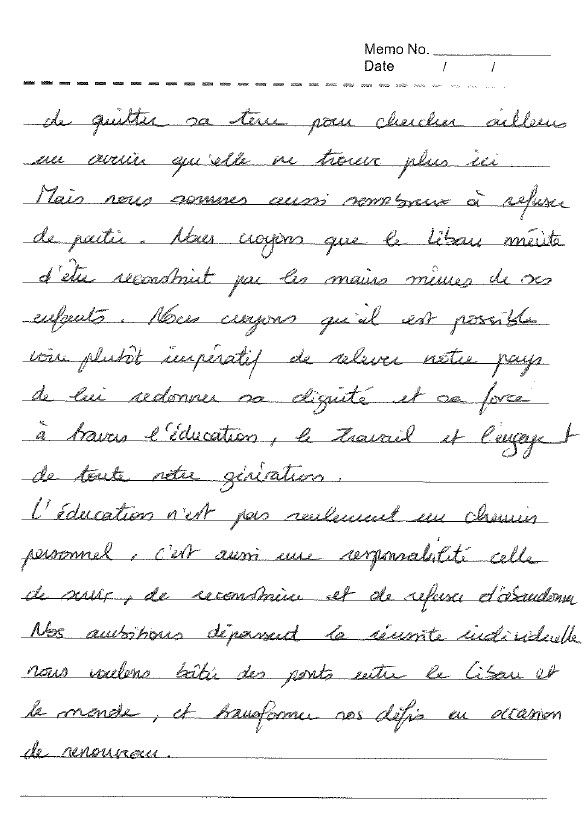 Memo No.
Date / /
de quitter sa terre pour chercher ailleurs
un avenir qu'elle ne trouve plus ici
Mais nous sommes aussi nombreux à refuser
de partir. Nous croyons que le Liban mérite
d'être reconstruit par les mains mêmes de ses
enfants. Nous croyons qu'il est possible
voire plutôt impératif de relever notre pays
de lui redonner sa dignité et sa force
à travers l'éducation, le travail et l'engagt
de toute notre génération.
L'éducation n'est pas seulement un chemin
personnel, c'est aussi une responsabilité celle
de servir, de reconstruire et de refuser d'abandonner
Nos ambitions dépassent la réussite individuelle
nous voulons bâtir des ponts entre le Liban et
le monde, et transformer nos défis en occasion
de renouveau.